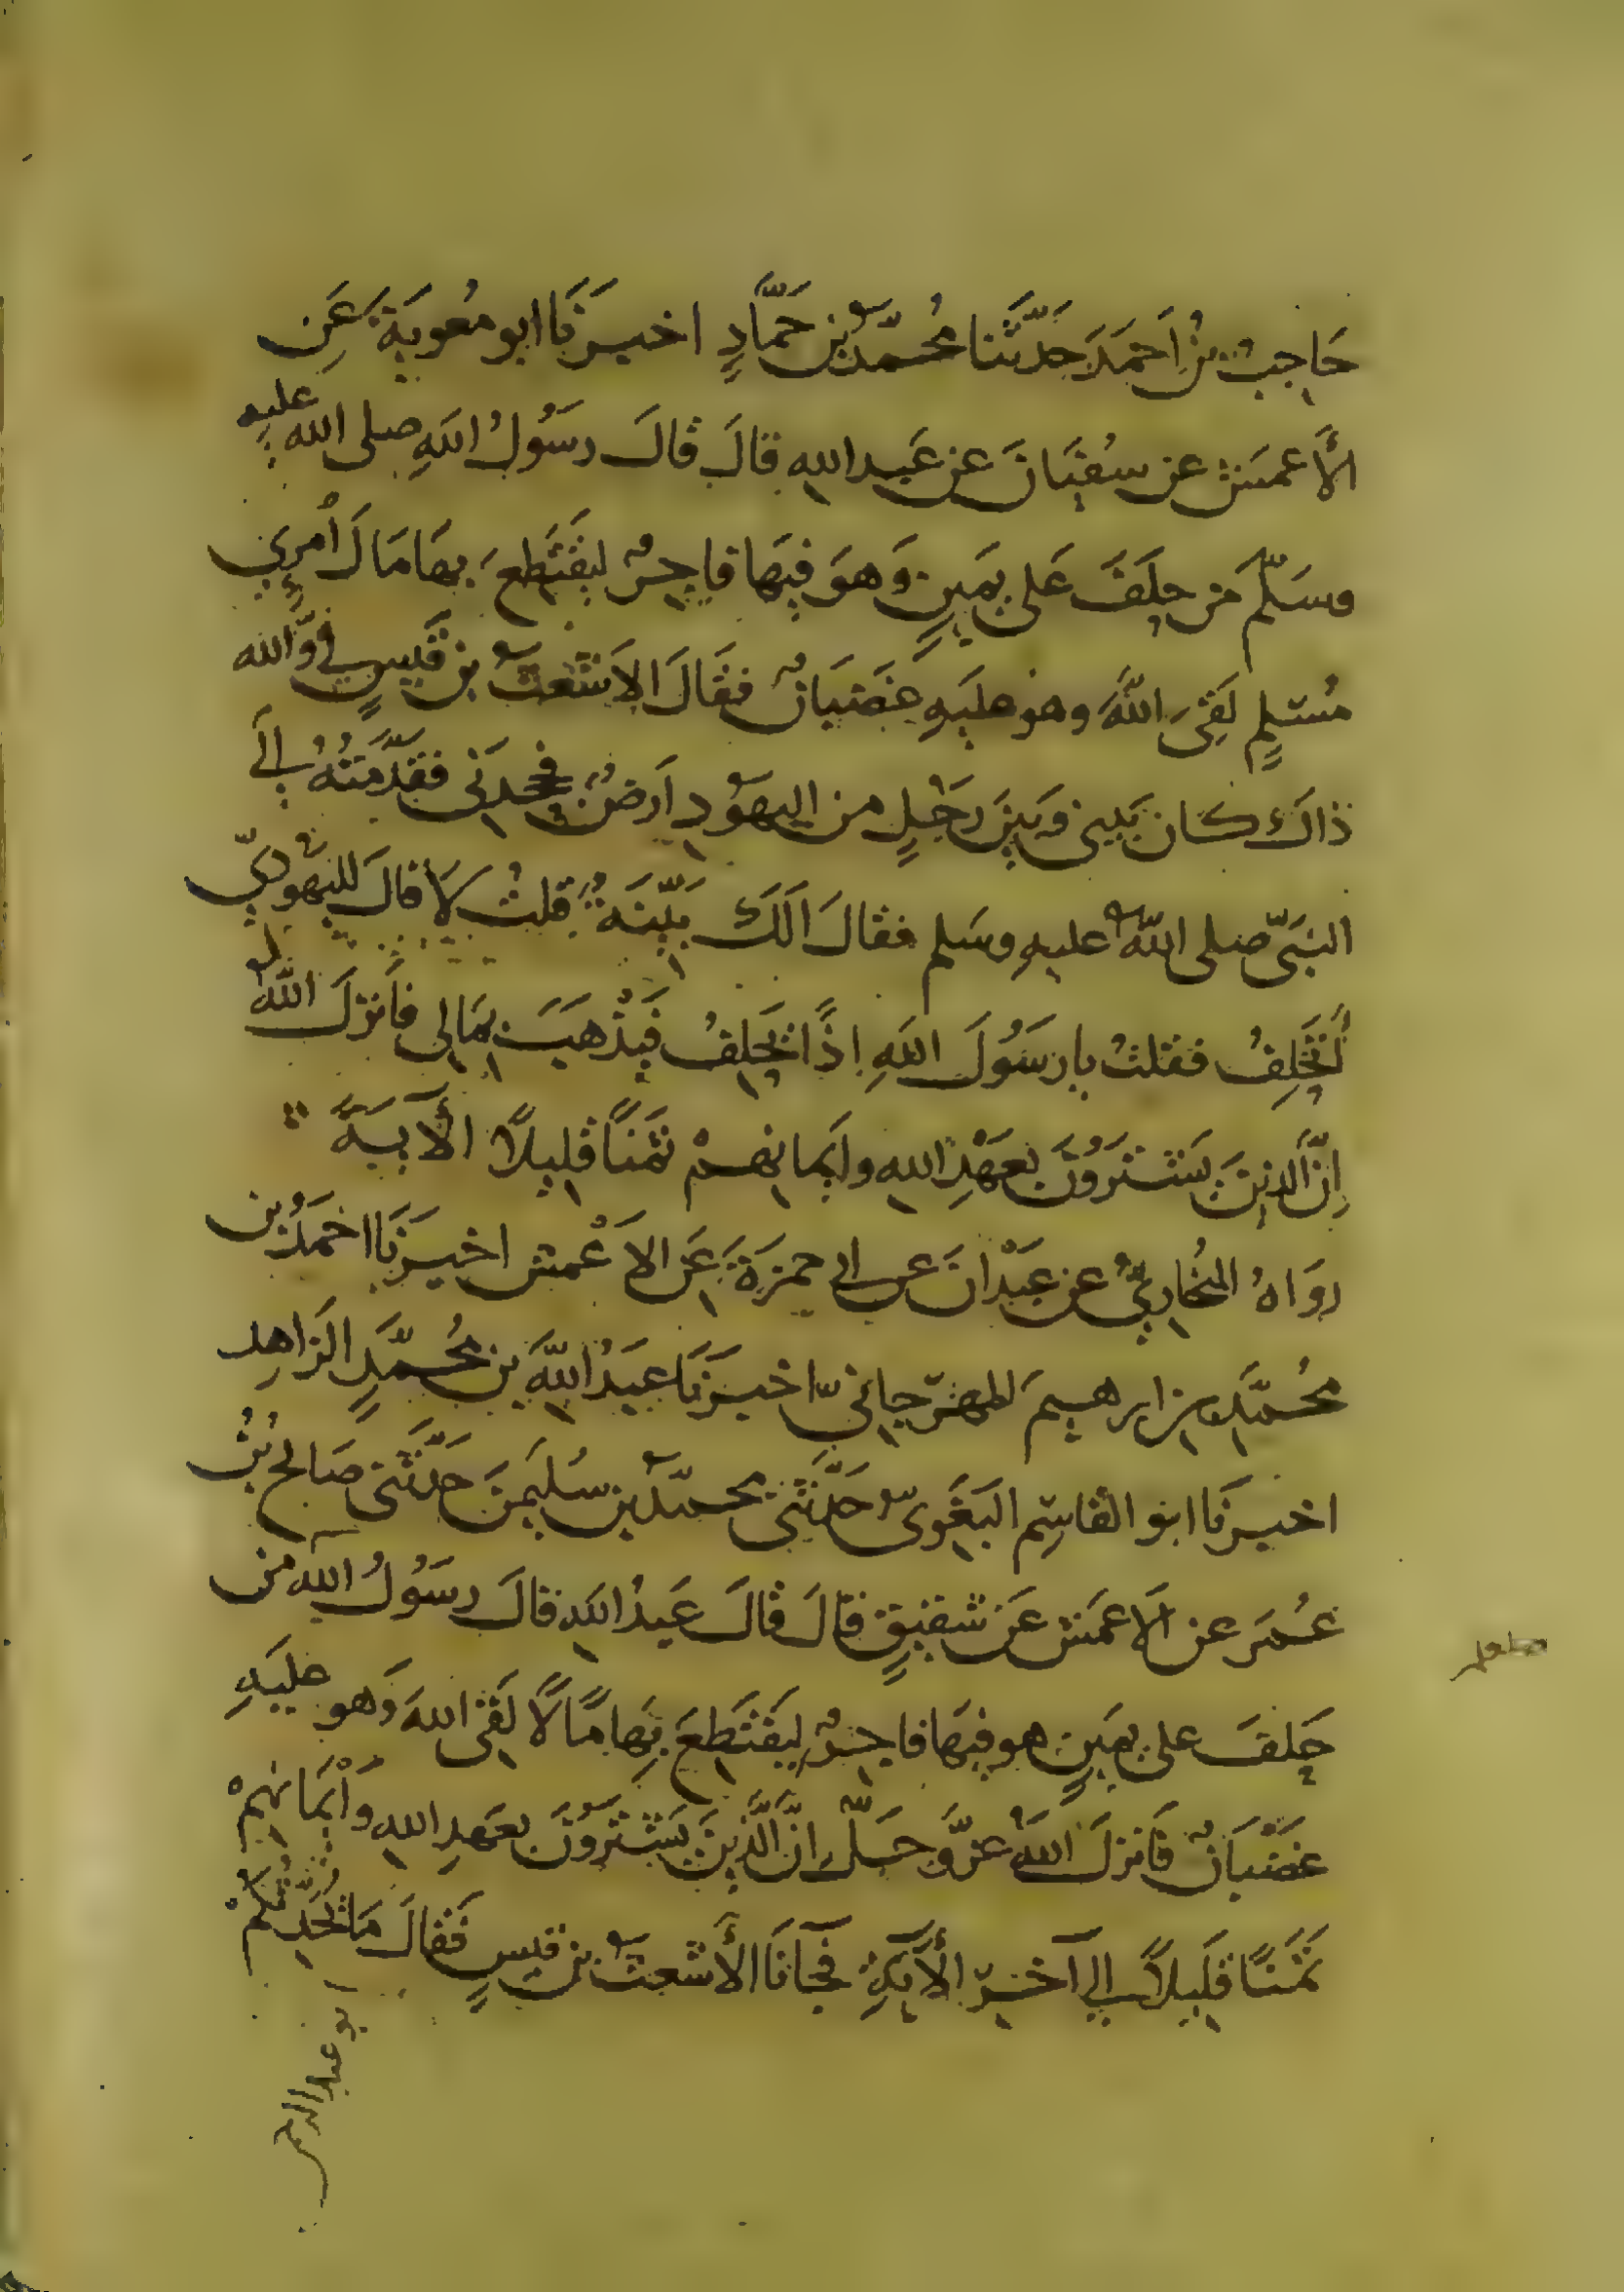 حَاجِبُ بْنُ اَحمَدَ حَدَّثَنا مُحمّدُ بن حَمَّادٍ اخبرَنَا ابو مُعوِيَةَ عَنِ
الأَعمَش عن سُفيَانَ عن عَبدِ اللهِ قالَ قالَ رسَوُلُ اللهِ صلى الله عليهِ
وسَلّمَ مَن حلَفَ عَلى يَمَينٍ وَهوَ فيهَا فاجِرٌ ليَقتَطِعَ بهَا مَالَ اُمرِئٍ
مُسْلمٍ لَقِىَ اللهَ وهو عليَهِ غضَبَانٌ فقَالَ الاَشعَثُ بن قَيسٍ فيَّ وَالله
ذاكَ كان بَيني وَبينَ رَجُلٍ من اليهَوُدِ اَرضٌ فجحدَنى فقدَّمتُهُ إلَى
النبَىّ صلى اللهُ عليهِ وسَلم فقالَ الَكَ بَيّنَةٌ قلتُ لاَ قالَ لليَهَوُديِّ
أتَحلِفُ فقلتُ يا رسَوُلَ اللهِ إذًا يَحلِفُ فَيَذْهَبَ بمَالى فاَنزلَ اللهُ
إنَّ الذينَ يَشتَرَوُنَ بعَهْدِ اللهِ وايَمانِهمْ ثمَنًا قليلاً الأيَةَ
روَاهُ البُخَارِيُّ عن عَبْدانَ عن ابى حمزَةَ عَن الاَعْمش اخبرَنَا احمَدُ بن
مُحمّدِ بن ابرهيمَ المهرَجانىّ اخبرَنَا عبَدُ اللهِ بن مُحمّدٍ الزَاهِد
اخبرنَا ابو القاسِم البَغَوىّ حَدَّثَنى محمّدُ بن سُلَيمَنَ حَدَّثَنى صَالحُ بْنُ
عُمَرَ عن الاَعمَش عَن شقيقٍ قالَ قالَ عَبدُ اللهِ قالَ رسَوُلُ اللهِ من
حَلفَ على يَمَينٍ هو فيهَا فاجِرٌ ليَقتَطعَ بهَا مَالًا لَقىَ اللهَ وَهو عليَهِ
غضَبَانٌ فَانزلَ اللهُ عزَّ وَجَلّ إنّ الَّذينَ يَشتَرَوُنَ بعَهدِ اللهِ وَايْمَانهِمْ
ثمَنًا قلَيلاً الى آخرِ الأَيَةِ فجآنَا الأَشعَثُ بن قيسٍ فقَالَ مَا يُحدِّثُكُمْ
ابو عبد الرحمن